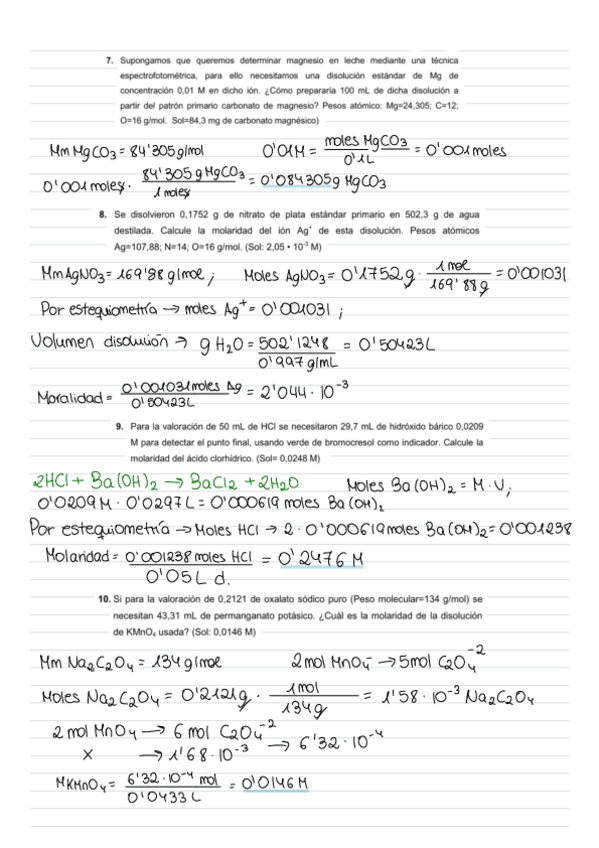 7. Supongamos que queremos determinar magnesio en leche mediante una técnica
espectrofotométrica, para ello necesitamos una disolución estándar de Mg de
concentración 0,01 M en dicho ión. ¿Cómo prepararía 100 mL de dicha disolución a
partir del patrón primario carbonato de magnesio? Pesos atómico: Mg=24,305; C=12;
O=16 g/mol. Sol=84,3 mg de carbonato magnésico)
Mm MgCO3 = 84'305 g/mol 0'01M = moles MgCO3 / 0'1L = 0'001 moles
0'001 moles · 84'305 g MgCO3 / 1 moles = 0'084305g MgCO3
8. Se disolvieron 0,1752 g de nitrato de plata estándar primario en 502,3 g de agua
destilada. Calcule la molaridad del ión Ag⁺ de esta disolución. Pesos atómicos
Ag=107,88; N=14; O=16 g/mol. (Sol: 2,05 • 10⁻³ M)
Mm AgNO3 = 169'88 g/mol ; Moles AgNO3 = 0'1752 g · 1 mol / 169'88 g = 0'001031
Por estequiometría → moles Ag⁺ = 0'001031 ;
Volumen disolución → g H2O = 502'1248 / 0'997 g/mL = 0'50423L
Moralidad = 0'001031 moles Ag / 0'50423L = 2'044 · 10⁻³
9. Para la valoración de 50 mL de HCl se necesitaron 29,7 mL de hidróxido bárico 0,0209
M para detectar el punto final, usando verde de bromocresol como indicador. Calcule la
molaridad del ácido clorhídrico. (Sol= 0,0248 M)
2HCl + Ba(OH)2 → BaCl2 + 2H2O Moles Ba(OH)2 = M · V ;
0'0209 M · 0'0297 L = 0'000619 moles Ba(OH)2
Por estequiometría → Moles HCl → 2 · 0'000619 moles Ba(OH)2 = 0'001238
Molaridad = 0'001238 moles HCl / 0'05 L d. = 0'2476 M
10. Si para la valoración de 0,2121 de oxalato sódico puro (Peso molecular=134 g/mol) se
necesitan 43,31 mL de permanganato potásico. ¿Cuál es la molaridad de la disolución
de KMnO₄ usada? (Sol: 0,0146 M)
Mm Na2C2O4 = 134 g/mol 2 mol MnO4⁻ → 5 mol C2O4⁻²
Moles Na2C2O4 = 0'2121g · 1 mol / 134 g = 1'58 · 10⁻³ Na2C2O4
2 mol MnO4 → 6 mol C2O4⁻²
X → 1'68 · 10⁻³ → 6'32 · 10⁻⁴
MKMnO4 = 6'32 · 10⁻⁴ mol / 0'0433 L = 0'0146 M